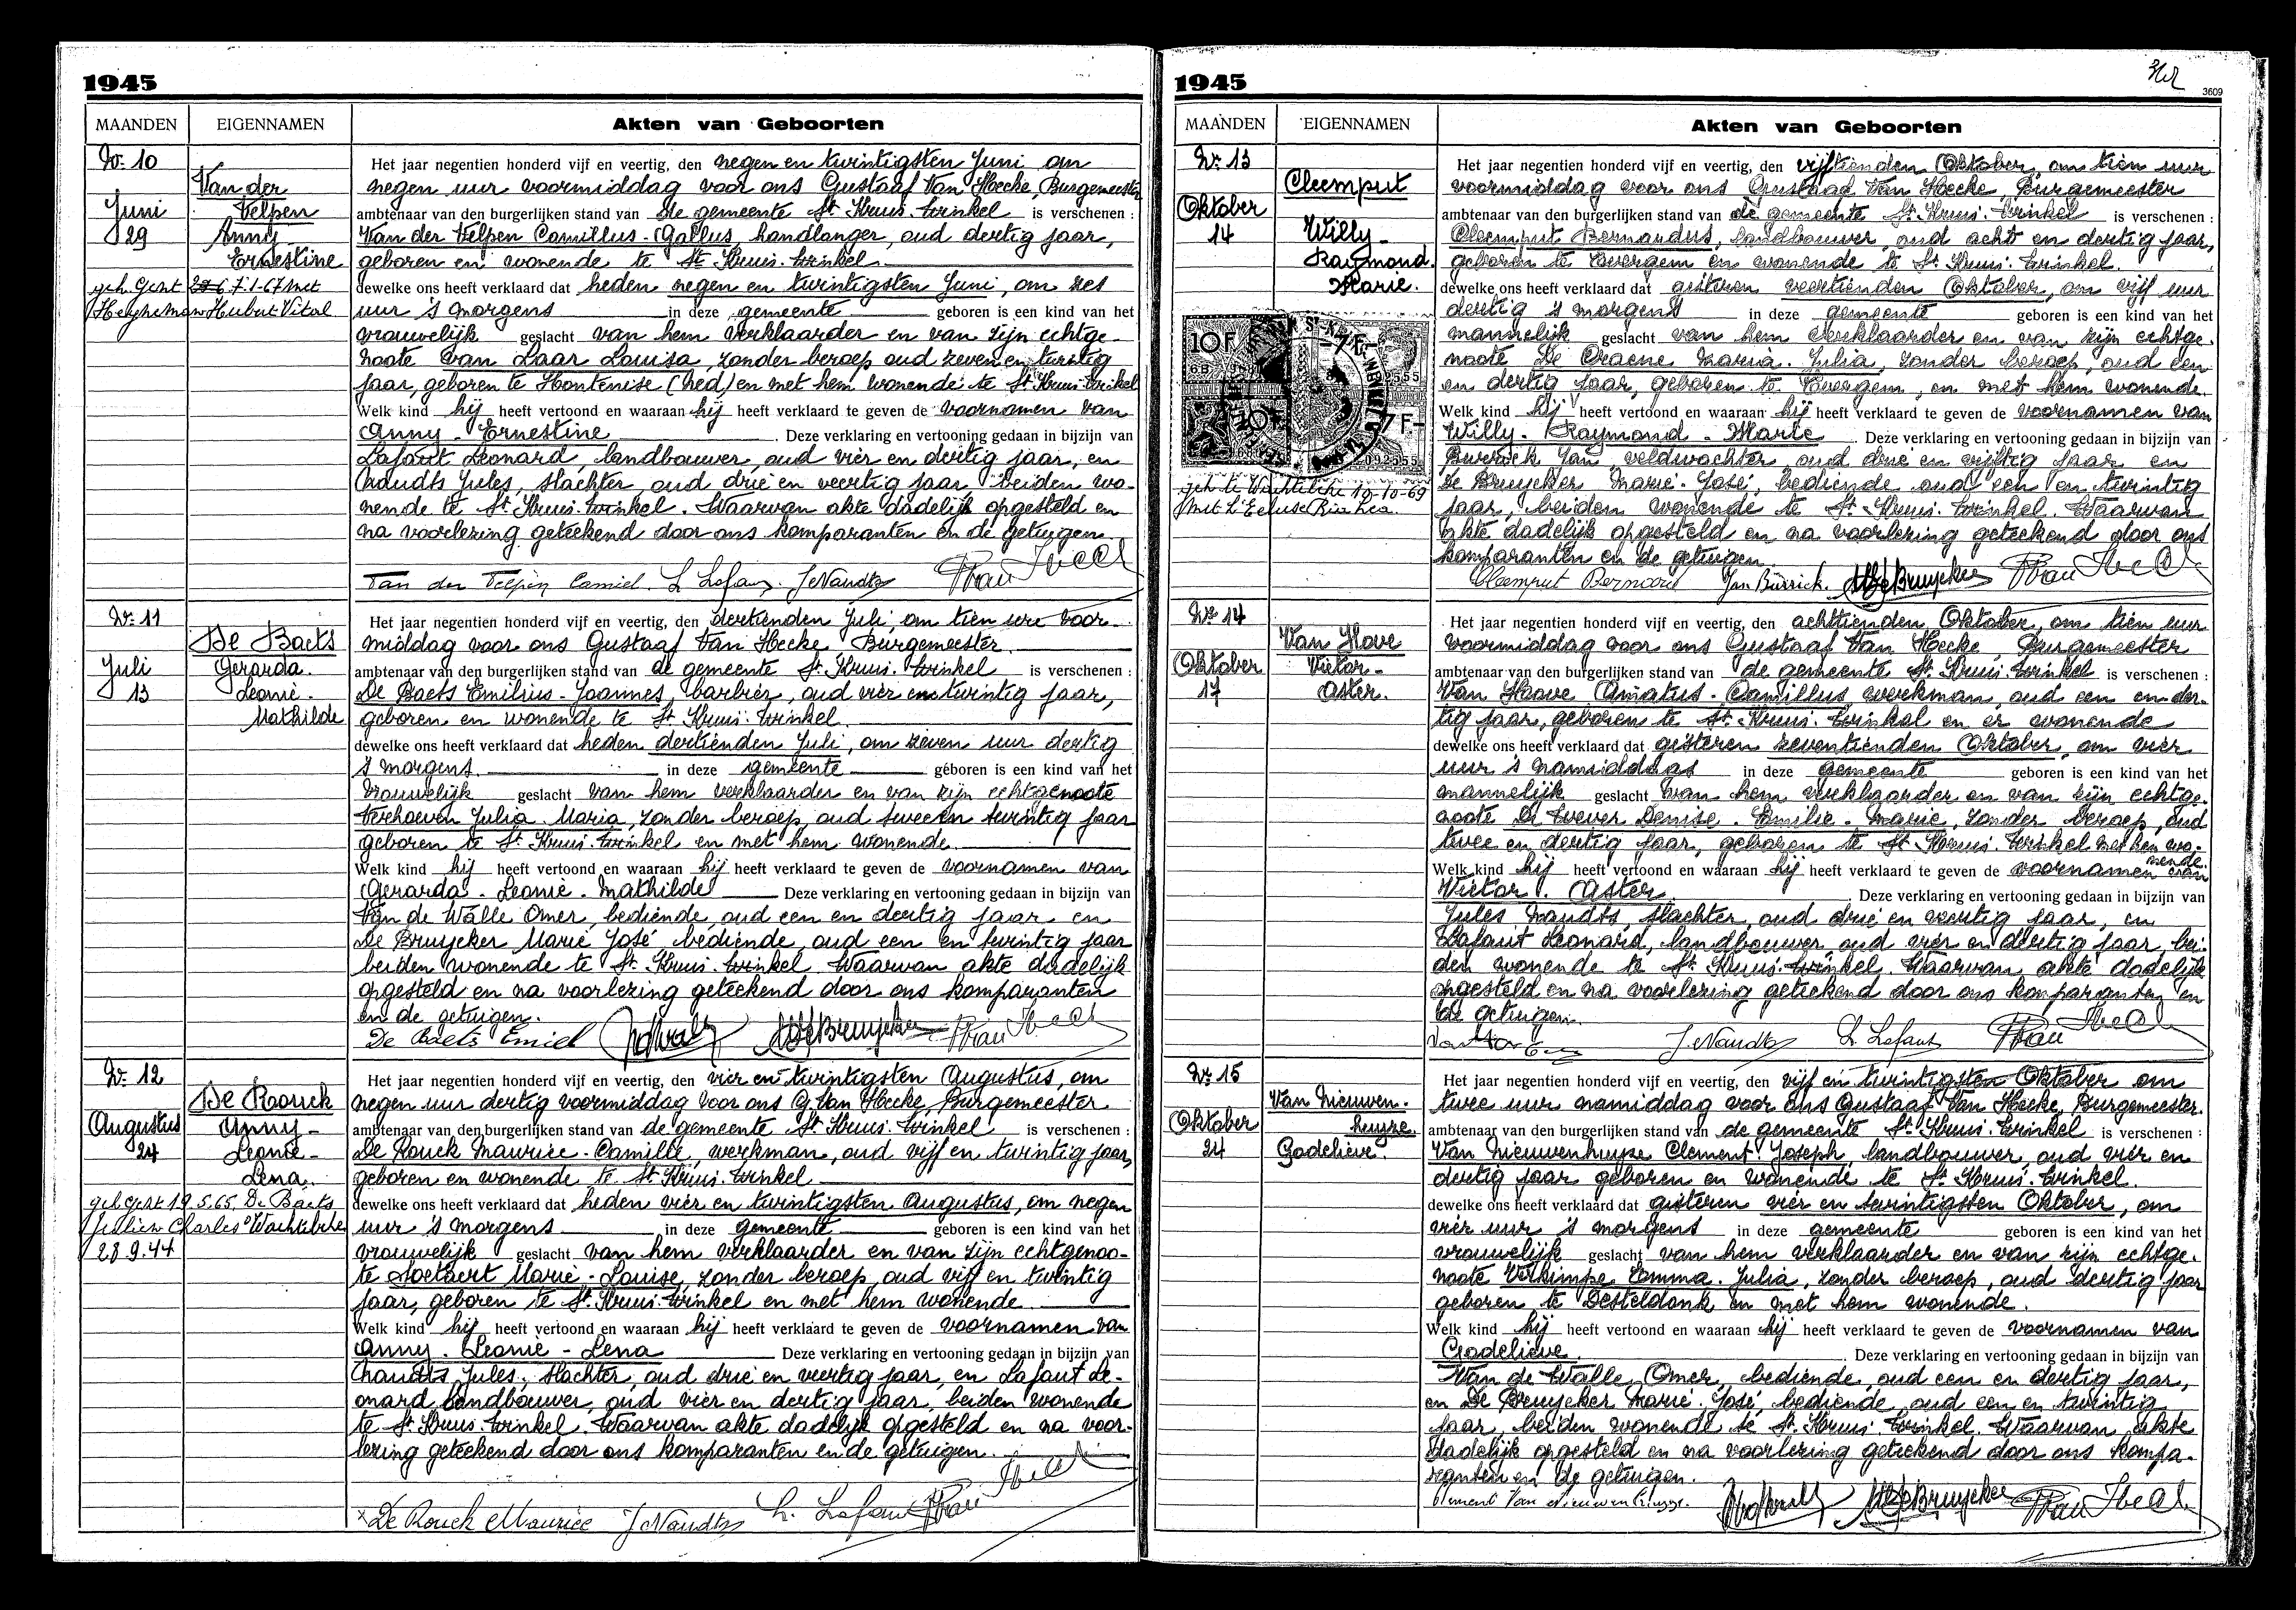 1945
MAANDEN EIGENNAMEN Akten van Geboorten
Nr. 10
Van der
Velpen
Juni
29
Anny-
Ernestine
geh. Gent 7-1-67 met
Heyneman Hubert Vital
Het jaar negentien honderd vijf en veertig, den negen en twintigsten Juni om
negen uur voormiddag voor ons Gustaaf Van Hecke, Burgemeester
ambtenaar van den burgerlijken stand van de gemeente St. Kruis-Winkel is verschenen :
Van der Velpen Camillus-Gallus, handlanger, oud dertig jaar,
geboren en wonende te St. Kruis-Winkel
dewelke ons heeft verklaard dat heden negen en twintigsten Juni, om zes
uur 's morgens in deze gemeente geboren is een kind van het
vrouwelijk geslacht van hem verklaarder en van zijn echtge-
noote Van Laar Louisa, zonder beroep oud zeven en twintig
jaar, geboren te Hontenisse (Ned) en met hem wonende te St. Kruis-Winkel
Welk kind hij heeft vertoond en waaraan hij heeft verklaard te geven de voornamen van
Anny-Ernestine. Deze verklaring en vertooning gedaan in bijzijn van
Lafaut Leonard, landbouwer, oud vier en dertig jaar, en
Naudts Jules, slachter, oud drie en veertig jaar beiden wo-
nende te St. Kruis-Winkel. Waarvan akte dadelijk opgesteld en
na voorlezing geteekend door ons komparanten en de getuigen.
Van der Velpen Camiel. L. Lafaut. J. Naudts
Nr. 11
De Baets
Juli
13
Gerarda-
Leonie-
Mathilde
Het jaar negentien honderd vijf en veertig, den dertienden Juli, om tien ure voor-
middag voor ons Gustaaf Van Hecke, Burgemeester
ambtenaar van den burgerlijken stand van de gemeente St. Kruis-Winkel is verschenen :
De Baets Emilius-Joannes, barbier, oud vier en twintig jaar,
geboren en wonende te St. Kruis-Winkel.
dewelke ons heeft verklaard dat heden dertienden Juli, om zeven uur dertig
's morgens. in deze gemeente geboren is een kind van het
vrouwelijk geslacht van hem verklaarder en van zijn echtgenoote
Verhoeven Julia-Maria, zonder beroep, oud twee en twintig jaar
geboren te St. Kruis-Winkel en met hem wonende.
Welk kind hij heeft vertoond en waaraan hij heeft verklaard te geven de voornamen van
Gerarda-Leonie-Mathilde Deze verklaring en vertooning gedaan in bijzijn van
Van de Walle Omer, bediende, oud een en dertig jaar en
De Bruycker Marie José, bediende, oud een en twintig jaar
beiden wonende te St. Kruis-Winkel. Waarvan akte dadelijk
opgesteld en na voorlezing geteekend door ons komparanten
en de getuigen.
De Baets Emiel MJ De Bruycker
Nr. 12
De Rouck
Augustus
24
Anny-
Leonie-
Lena.
geh. Gent 19.5.65 De Baets
Julien Charles ° Wachtebeke
28.9.44
Het jaar negentien honderd vijf en veertig, den vier en twintigsten Augustus, om
negen uur dertig voormiddag voor ons G. Van Hecke, Burgemeester
ambtenaar van den burgerlijken stand van de gemeente St. Kruis-Winkel is verschenen :
De Rouck Maurice-Camille, werkman, oud vijf en twintig jaar,
geboren en wonende te St. Kruis-Winkel
dewelke ons heeft verklaard dat heden vier en twintigsten Augustus, om negen
uur 's morgens in deze gemeente geboren is een kind van het
vrouwelijk geslacht van hem verklaarder en van zijn echtgenoo-
te Soetaert Marie-Louise, zonder beroep, oud vijf en twintig
jaar, geboren te St. Kruis-Winkel en met hem wonende
Welk kind hij heeft vertoond en waaraan hij heeft verklaard te geven de voornamen van
Anny-Leonie-Lena Deze verklaring en vertooning gedaan in bijzijn van
Naudts Jules, slachter, oud drie en veertig jaar, en Lafaut Le-
onard, landbouwer, oud vier en dertig jaar, beiden wonende
te St. Kruis-Winkel. Waarvan akte dadelijk opgesteld en na voor-
lezing geteekend door ons komparanten en de getuigen.
x De Rouck Maurice J. Naudts L. Lafaut
1945
3609
MAANDEN EIGENNAMEN Akten van Geboorten
Nr. 13
Cleemput
Oktober
14
Willy-
Raymond.
Marie.
10 F
7 F
geh. te Wachtebeke 10-10-69
met L'Ecluse Ria Lea.
Het jaar negentien honderd vijf en veertig, den vijftienden Oktober, om tien uur
voormiddag voor ons Gustaaf Van Hecke, Burgemeester
ambtenaar van den burgerlijken stand van de gemeente St. Kruis-Winkel is verschenen :
Cleemput Bernardus, landbouwer, oud acht en dertig jaar,
geboren te Evergem en wonende te St. Kruis-Winkel.
dewelke ons heeft verklaard dat gisteren veertienden Oktober, om vijf uur
dertig 's morgens in deze gemeente geboren is een kind van het
mannelijk geslacht van hem verklaarder en van zijn echtge-
noote De Craene Maria-Julia, zonder beroep, oud een
en dertig jaar, geboren te Evergem, en met hem wonende.
Welk kind hij heeft vertoond en waaraan hij heeft verklaard te geven de voornamen van
Willy-Raymond-Marie. Deze verklaring en vertooning gedaan in bijzijn van
Burrick Jan veldwachter oud drie en vijftig jaar en
De Bruycker Marie-José, bediende oud een en twintig
jaar, beiden wonende te St. Kruis-Winkel. Waarvan
akte dadelijk opgesteld en na voorlezing geteekend door ons
komparanten en de getuigen.
Cleemput Bernard Jan Burrick. MJ De Bruycker
Nr. 14
Van Hove
Oktober
17
Victor-
Aster.
Het jaar negentien honderd vijf en veertig, den achttienden Oktober, om tien uur
voormiddag voor ons Gustaaf Van Hecke, Burgemeester
ambtenaar van den burgerlijken stand van de gemeente St. Kruis-Winkel is verschenen :
Van Hoove Amatus-Camillus, werkman, oud een en der-
tig jaar, geboren te St. Kruis-Winkel en er wonende
dewelke ons heeft verklaard dat gisteren zeventienden Oktober, om vier
uur 's namiddags in deze gemeente geboren is een kind van het
mannelijk geslacht van hem verklaarder en van zijn echtge-
noote De Wever Denise-Emilie-Marie, zonder beroep, oud
twee en dertig jaar, geboren te St. Kruis-Winkel met hem wo-
nende.
Welk kind hij heeft vertoond en waaraan hij heeft verklaard te geven de voornamen van
Victor-Aster Deze verklaring en vertooning gedaan in bijzijn van
Jules Naudts, slachter, oud drie en veertig jaar, en
Lafaut Leonard, landbouwer oud vier en dertig jaar, bei-
den wonende te St. Kruis-Winkel. Waarvan akte dadelijk
opgesteld en na voorlezing geteekend door ons komparanten en
de getuigen.
J. Naudts L. Lafaut
Nr. 15
Van Nieuwen-
huyze.
Oktober
24
Godelieve.
Het jaar negentien honderd vijf en veertig, den vijf en twintigsten Oktober om
twee uur namiddag voor ons Gustaaf Van Hecke, Burgemeester.
ambtenaar van den burgerlijken stand van de gemeente St. Kruis-Winkel is verschenen :
Van Nieuwenhuyse Clement Joseph, landbouwer, oud vier en
dertig jaar geboren en wonende te St. Kruis-Winkel.
dewelke ons heeft verklaard dat gisteren vier en twintigsten Oktober, om
vier uur 's morgens in deze gemeente geboren is een kind van het
vrouwelijk geslacht van hem verklaarder en van zijn echtge-
noote Verkimpe Emma-Julia, zonder beroep, oud dertig jaar
geboren te Desteldonk en met hem wonende.
Welk kind hij heeft vertoond en waaraan hij heeft verklaard te geven de voornamen van
Godelieve. Deze verklaring en vertooning gedaan in bijzijn van
Van de Walle, Omer, bediende, oud een en dertig jaar,
en De Bruycker Marie-José, bediende, oud een en twintig
jaar, beiden wonende te St. Kruis-Winkel. Waarvan akte
dadelijk opgesteld en na voorlezing geteekend door ons kompa-
ranten en de getuigen.
Clement Van Nieuwenhuyze. MJ De Bruycker